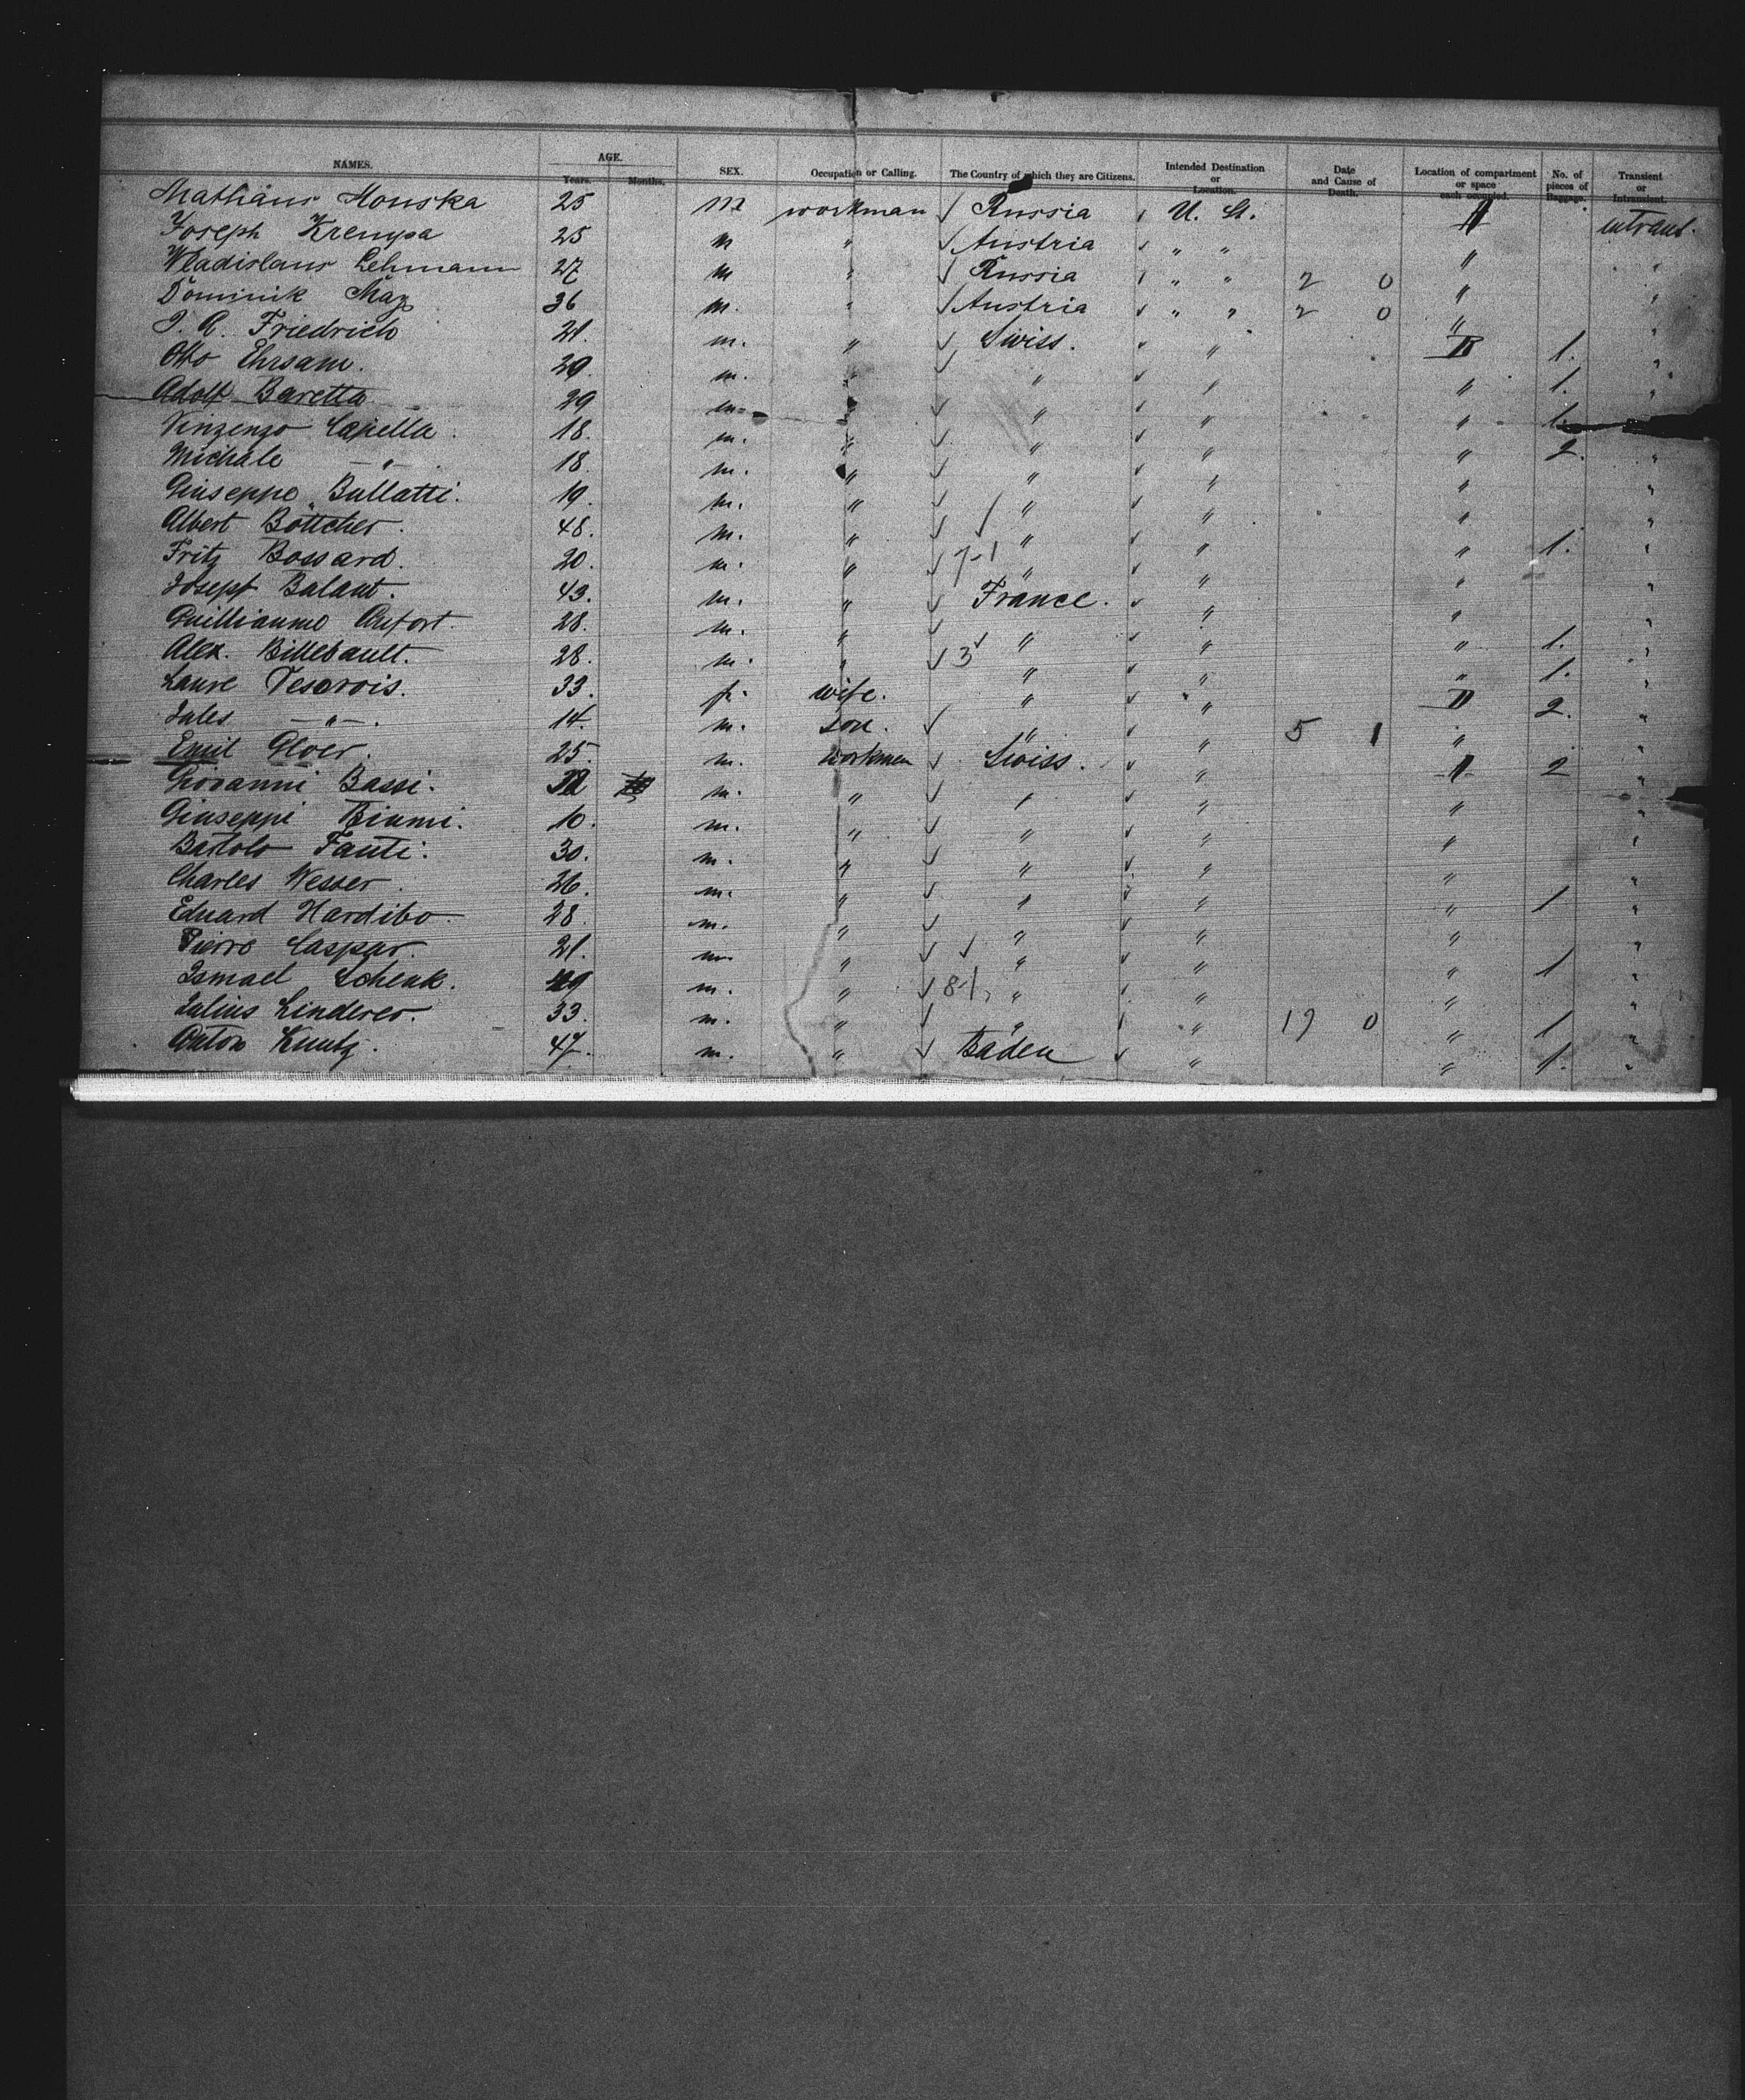 NAMES. AGE. Years. Months. SEX. Occupation or Calling. The Country of which they are Citizens. Intended Destination or Location. Date and Cause of Death. Location of compartment or space each occupied. No. of pieces of Baggage. Transient or Intransient.
Mathäus Mouska 25 m workman √ Russia √ U. St. II intrans.
Joseph Krempa 25 m " √ Austria √ " " " "
Wladislaus Lehmann 27 m " √ Russia √ " " 2 0 " "
Dominik Maz 36 m. " √ Austria √ " " 2 0 " "
J. R. Friedrich 21. m. " √ Swiss. √ " II 1. "
Otto Ehrsam. 29. m. " √ " √ " " 1. "
Adolf Baretta 29 m. " √ " √ " " 1. "
Vinzenzo Capella. 18. m. " √ " √ " " 2. "
Michale -"-. 18. m. " √ " √ " " "
Giuseppe Bullatti. 19. m. " √ " √ " " "
Albert Böttcher. 48. m. " √ √ " √ " " 1. "
Fritz Bossard. 20. m. " √ 7-1 " √ " " "
Josept Balant. 43. m. " √ France. √ " " "
Guilliaume 28. m. " √ √ " √ " " 1. "
Alex. Billebault. 28. m. " √ 3 " √ " " 1. "
Laure 33. f. wife. " √ " II 2. "
Jules -"-. 14. m. son. √ " √ " 5 1 " "
Emil Gloer. 25. m. workmen √ Swiss. √ " II 2 "
Giovanni Bassi. 32 m. " √ " √ " " "
Giuseppi Biumi. 10. m. " √ " √ " " "
Bartolo Fanti. 30. m. " √ " √ " " "
Charles Wesser. 26. m. " √ " √ " " 1 "
Eduard Hardibo. 28. m. " √ " √ " " "
Pierre Caspar. 21. m. " √ √ " √ " " 1 "
Ismael Schenk. 49 m. " √ 8-1 " √ " " "
Julius Linderer. 33. m. " √ " √ " 19 0 " 1 "
Anton Kuntz. 47. m. " √ Baden √ " " 1. "